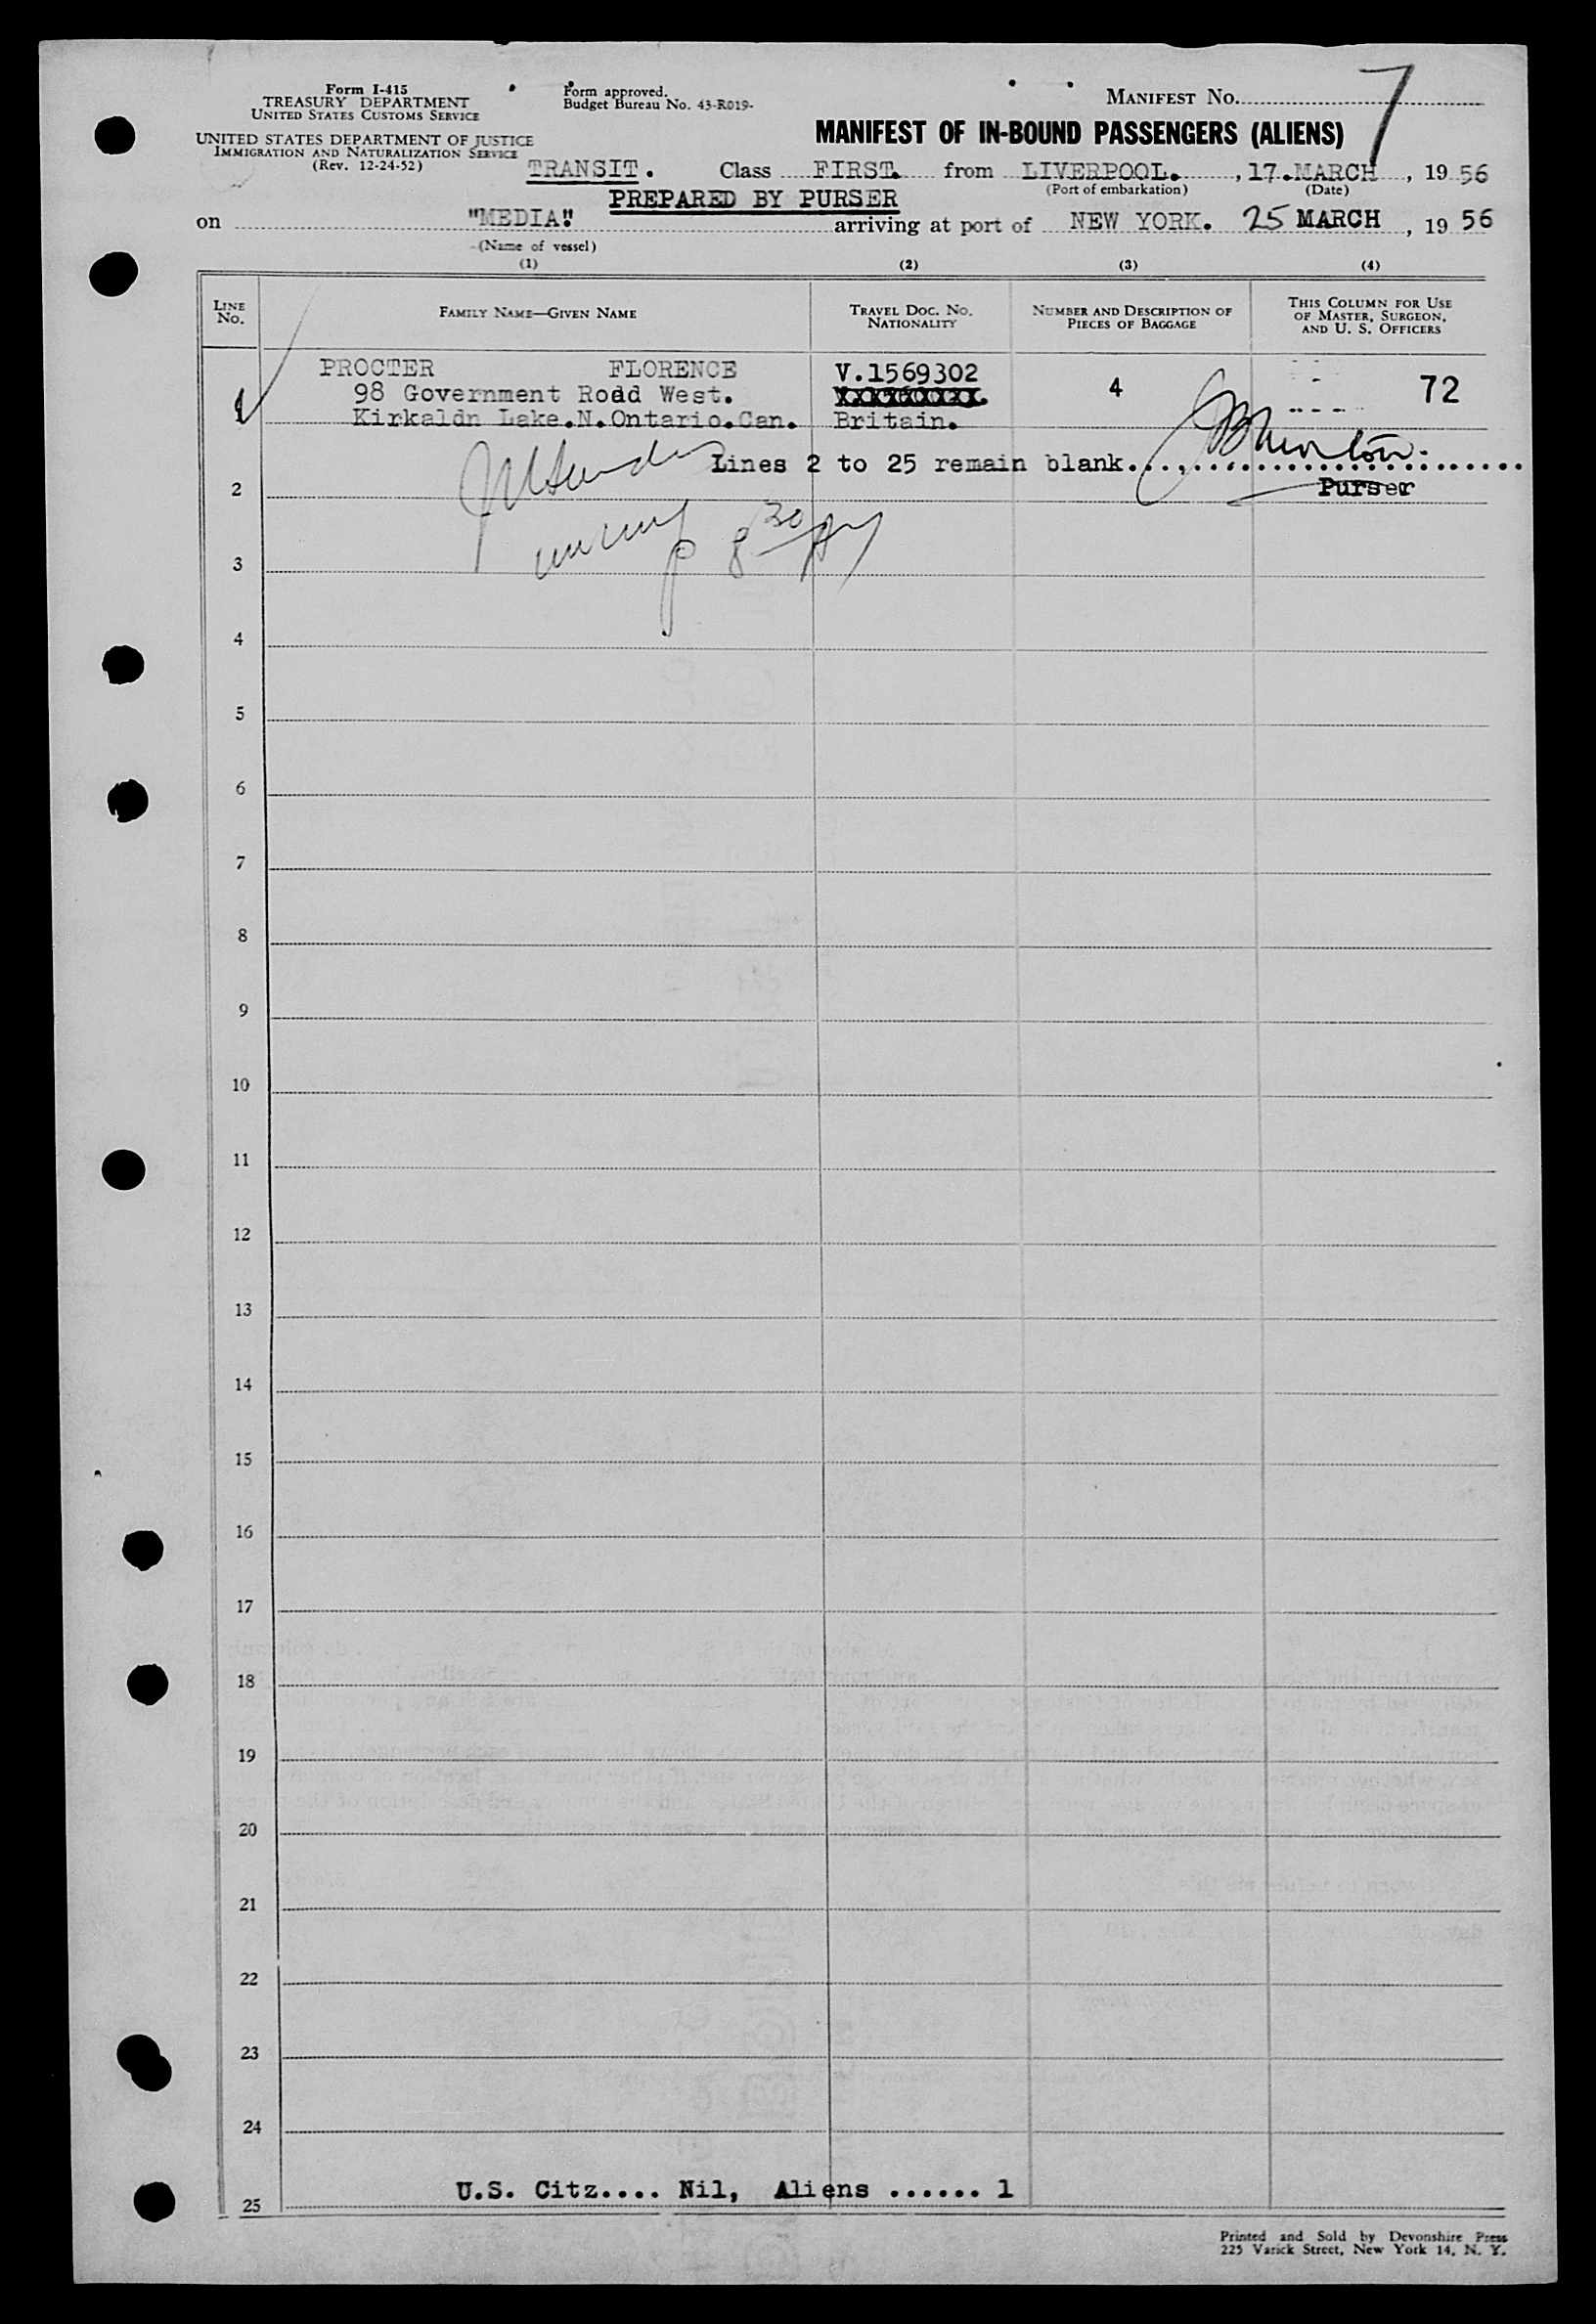 Form I-415
TREASURY DEPARTMENT
UNITED STATES CUSTOMS SERVICE
UNITED STATES DEPARTMENT OF JUSTICE
IMMIGRATION AND NATURALIZATION SERVICE
(Rev. 12-24-52)
Form approved.
Budget Bureau No. 43-R019-
MANIFEST No. 7
MANIFEST OF IN-BOUND PASSENGERS (ALIENS)
TRANSIT. Class FIRST. from LIVERPOOL., 17.MARCH, 19 56
(Port of embarkation) (Date)
PREPARED BY PURSER
on "MEDIA" arriving at port of NEW YORK. 25 MARCH, 19 56
(Name of vessel)
(1) (2) (3) (4)
LINE No. FAMILY NAME—GIVEN NAME TRAVEL DOC. NO. NATIONALITY NUMBER AND DESCRIPTION OF PIECES OF BAGGAGE THIS COLUMN FOR USE OF MASTER, SURGEON, AND U. S. OFFICERS
PROCTER FLORENCE V.1569302
1 98 Government Road West. 4 72
Kirkaldn Lake.N.Ontario.Can. Britain.
Lines 2 to 25 remain blank..........................
Purser
2
8 30
3
4
5
6
7
8
9
10
11
12
13
14
15
16
17
18
19
20
21
22
23
24
25 U.S. Citz.... Nil, Aliens ...... 1
Printed and Sold by Devonshire Press
225 Varick Street, New York 14, N. Y.